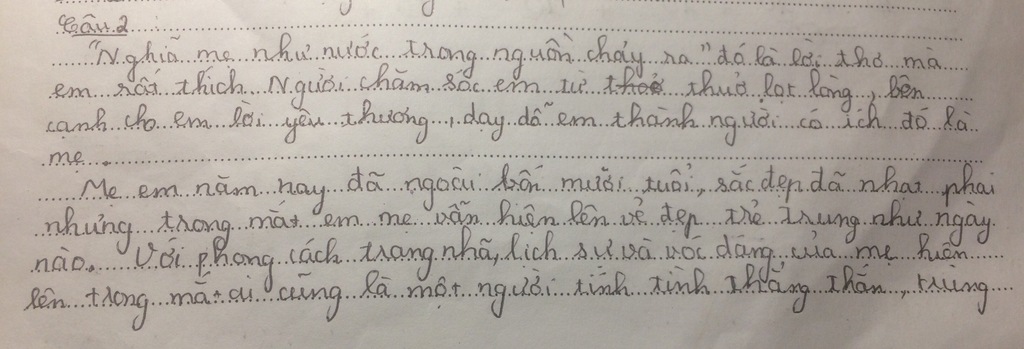 Câu 2
"Nghĩa mẹ như nước trong nguồn chảy ra" đó là lời thơ mà
em rất thích. Người chăm sóc em từ thuở lọt lòng, bên
cạnh cho em lời yêu thương, dạy dỗ em thành người có ích đó là
mẹ.
Mẹ em năm nay đã ngoài bốn mươi tuổi, sắc đẹp đã nhạt phai
nhưng trong mắt em mẹ vẫn hiện lên vẻ đẹp trẻ trung như ngày
nào. Với phong cách trang nhã, lịch sự và vóc dáng của mẹ hiện
lên trong mắt ai cũng là một người tính tình thẳng thắn, trùng